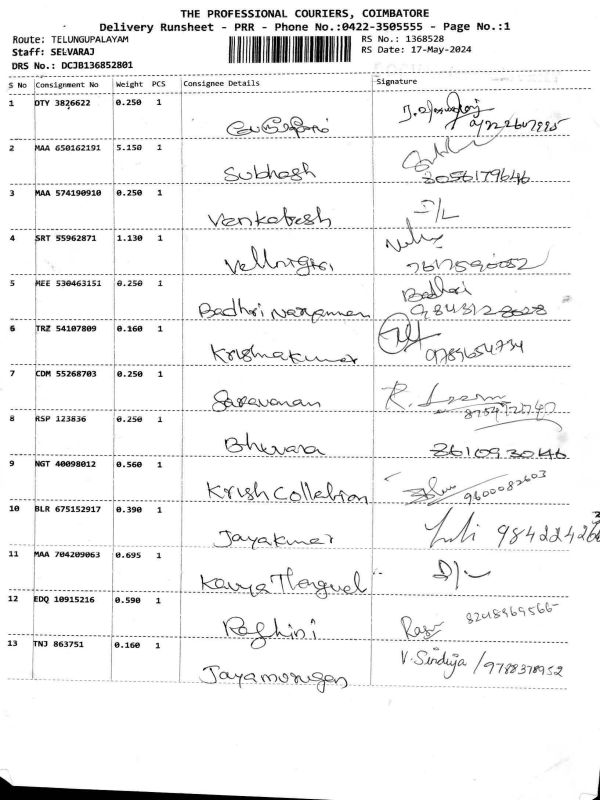 THE PROFESSIONAL COURIERS, COIMBATORE
Delivery Runsheet - PRR - Phone No.:0422-3505555 - Page No.:1
Route: TELUNGUPALAYAM RS No.: 1368528
Staff: SELVARAJ RS Date: 17-May-2024
DRS No.: DCJB136852801
S No Consignment No Weight PCS Consignee Details Signature
1 DTY 3826622 0.250 1
2 MAA 650162191 5.150 1
Subhash 8056179646
3 MAA 574190910 0.250 1
Venkatesh
4 SRT 55962871 1.130 1
Vellnigiri
5 MEE 530463151 0.250 1 Badhri
Badhri Narayanan 9843128028
6 TRZ 54107809 0.160 1
Krishnakumar 9789654734
7 CDM 55268703 0.250 1
Saravanan
8 RSP 123836 0.250 1
8610930146
9 NGT 40098012 0.560 1
Krish Collebtion 9600082603
10 BLR 675152917 0.390 1
Jayakumar
11 MAA 704209063 0.695 1
Kavya
12 EDQ 10915216 0.590 1
Raghini
13 TNJ 863751 0.160 1 V. Sinduja / 9788378952
Jayamurugan